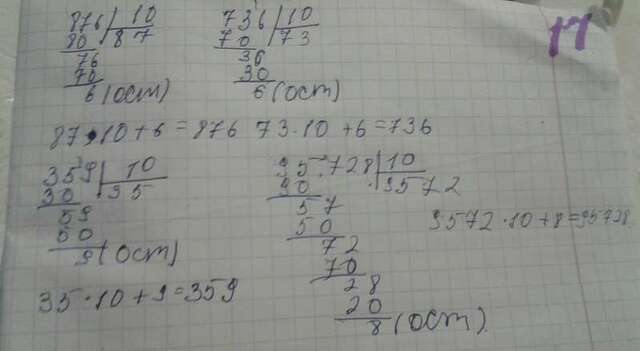 876 | 10
80 87
76
70
6 (ост)
736 | 10
70 73
36
30
6 (ост)
17
87·10+6=876 73·10+6=736
359 | 10
30 35
59
50
9 (ост)
35·10+9=359
95.728 | 10
90 9572
57
50
72
70
28
20
8 (ост)
9572·10+8=95728